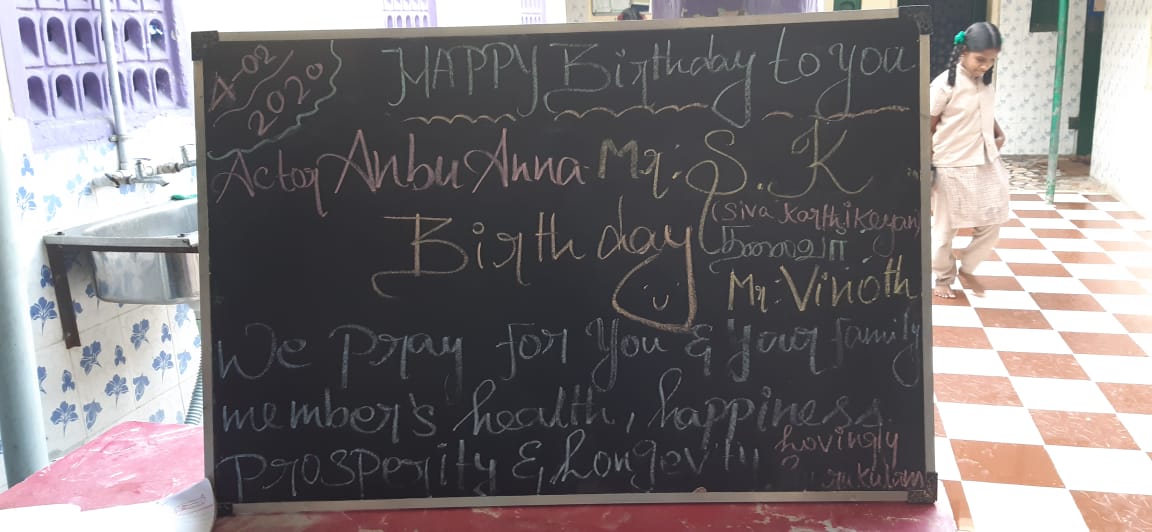 4-02
2020
HAPPY Birthday to you
Actor Anbu Anna Mr. S. K
(Siva Karthikeyan)
Birthday
Mr: Vinoth
We Pray for You & Your family
member's health, happiness
Prosperity & Longevity
Lovingly
Gurukulam